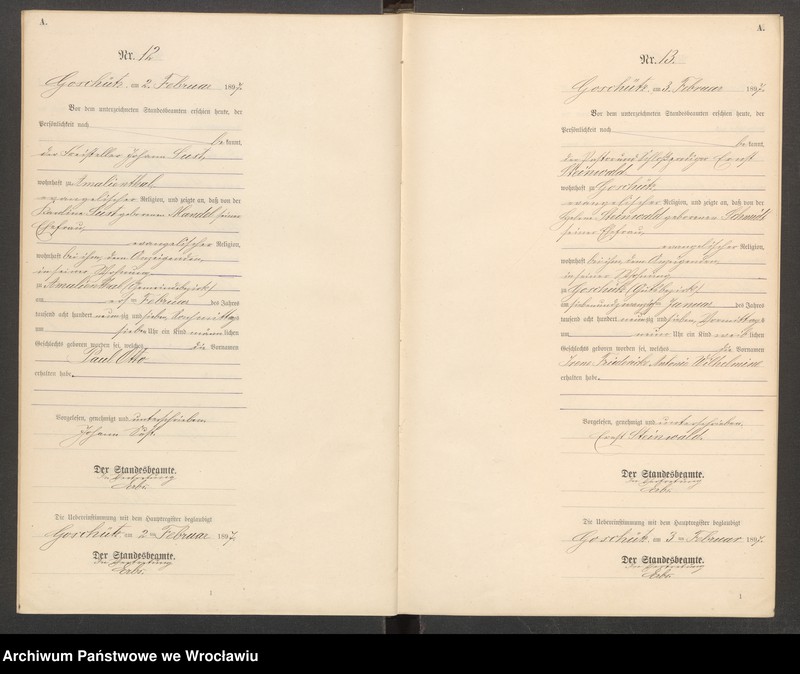 A.
Nr. 12
Goschütz, am 2. Februar 1897.
Vor dem unterzeichneten Standesbeamten erschien heute, der
Persönlichkeit nach
be kannt,
der Freisteller Johann
wohnhaft zu Amalienthal,
evangelischer Religion, und zeigte an, daß von der
Karoline geborenen seiner
Ehefrau,
evangelischer Religion,
wohnhaft bei ihm, dem Anzeigenden,
in seiner Wohnung
zu Amalienthal (Gemeindebezirk)
am ersten Februar des Jahres
tausend acht hundert neunzig und sieben, Nachmittags
um sieben Uhr ein Kind männlichen
Geschlechts geboren worden sei, welches die Vornamen
Paul Otto
erhalten habe.
Vorgelesen, genehmigt und unterschrieben.
Johann
Der Standesbeamte.
In Vertretung
Die Uebereinstimmung mit dem Hauptregister beglaubigt
Goschütz, am 2ten Februar 1897.
Der Standesbeamte.
In Vertretung
1
A.
Nr. 13.
Goschütz, am 3. Februar 1897.
Vor dem unterzeichneten Standesbeamten erschien heute, der
Persönlichkeit nach
be kannt,
der Pastor und Schloßprediger Ernst
Steinwald
wohnhaft zu Goschütz
evangelischer Religion, und zeigte an, daß von der
Helene Steinwald geborenen Schmidt
seiner Ehefrau,
evangelischer Religion,
wohnhaft bei ihm, dem Anzeigenden,
in seiner Wohnung
zu Goschütz (Gutsbezirk)
am siebenundzwanzigsten Januar des Jahres
tausend acht hundert neunzig und sieben, Vormittags
um neun Uhr ein Kind weiblichen
Geschlechts geboren worden sei, welches die Vornamen
Irene Friederike Antonie Wilhelmine
erhalten habe.
Vorgelesen, genehmigt und unterschrieben.
Ernst Steinwald.
Der Standesbeamte.
In Vertretung
Die Uebereinstimmung mit dem Hauptregister beglaubigt
Goschütz, am 3ten Februar 1897.
Der Standesbeamte.
In Vertretung
1
Archiwum Państwowe we Wrocławiu